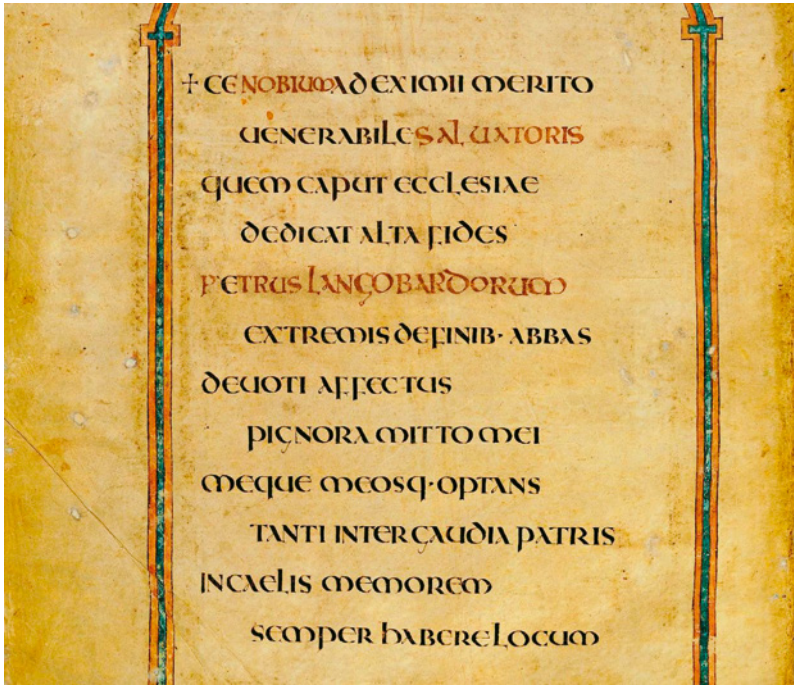 + CENOBIUM AD EXIMII MERITO
UENERABILE SALUATORIS
QUEM CAPUT ECCLESIAE
DEDICAT ALTA FIDES
PETRUS LANGOBARDORUM
EXTREMIS DE FINIB· ABBAS
DEUOTI AFFECTUS
PIGNORA MITTO MEI
MEQUE MEOSQ·OPTANS
TANTI INTER GAUDIA PATRIS
IN CAELIS MEMOREM
SEMPER HABERE LOCUM